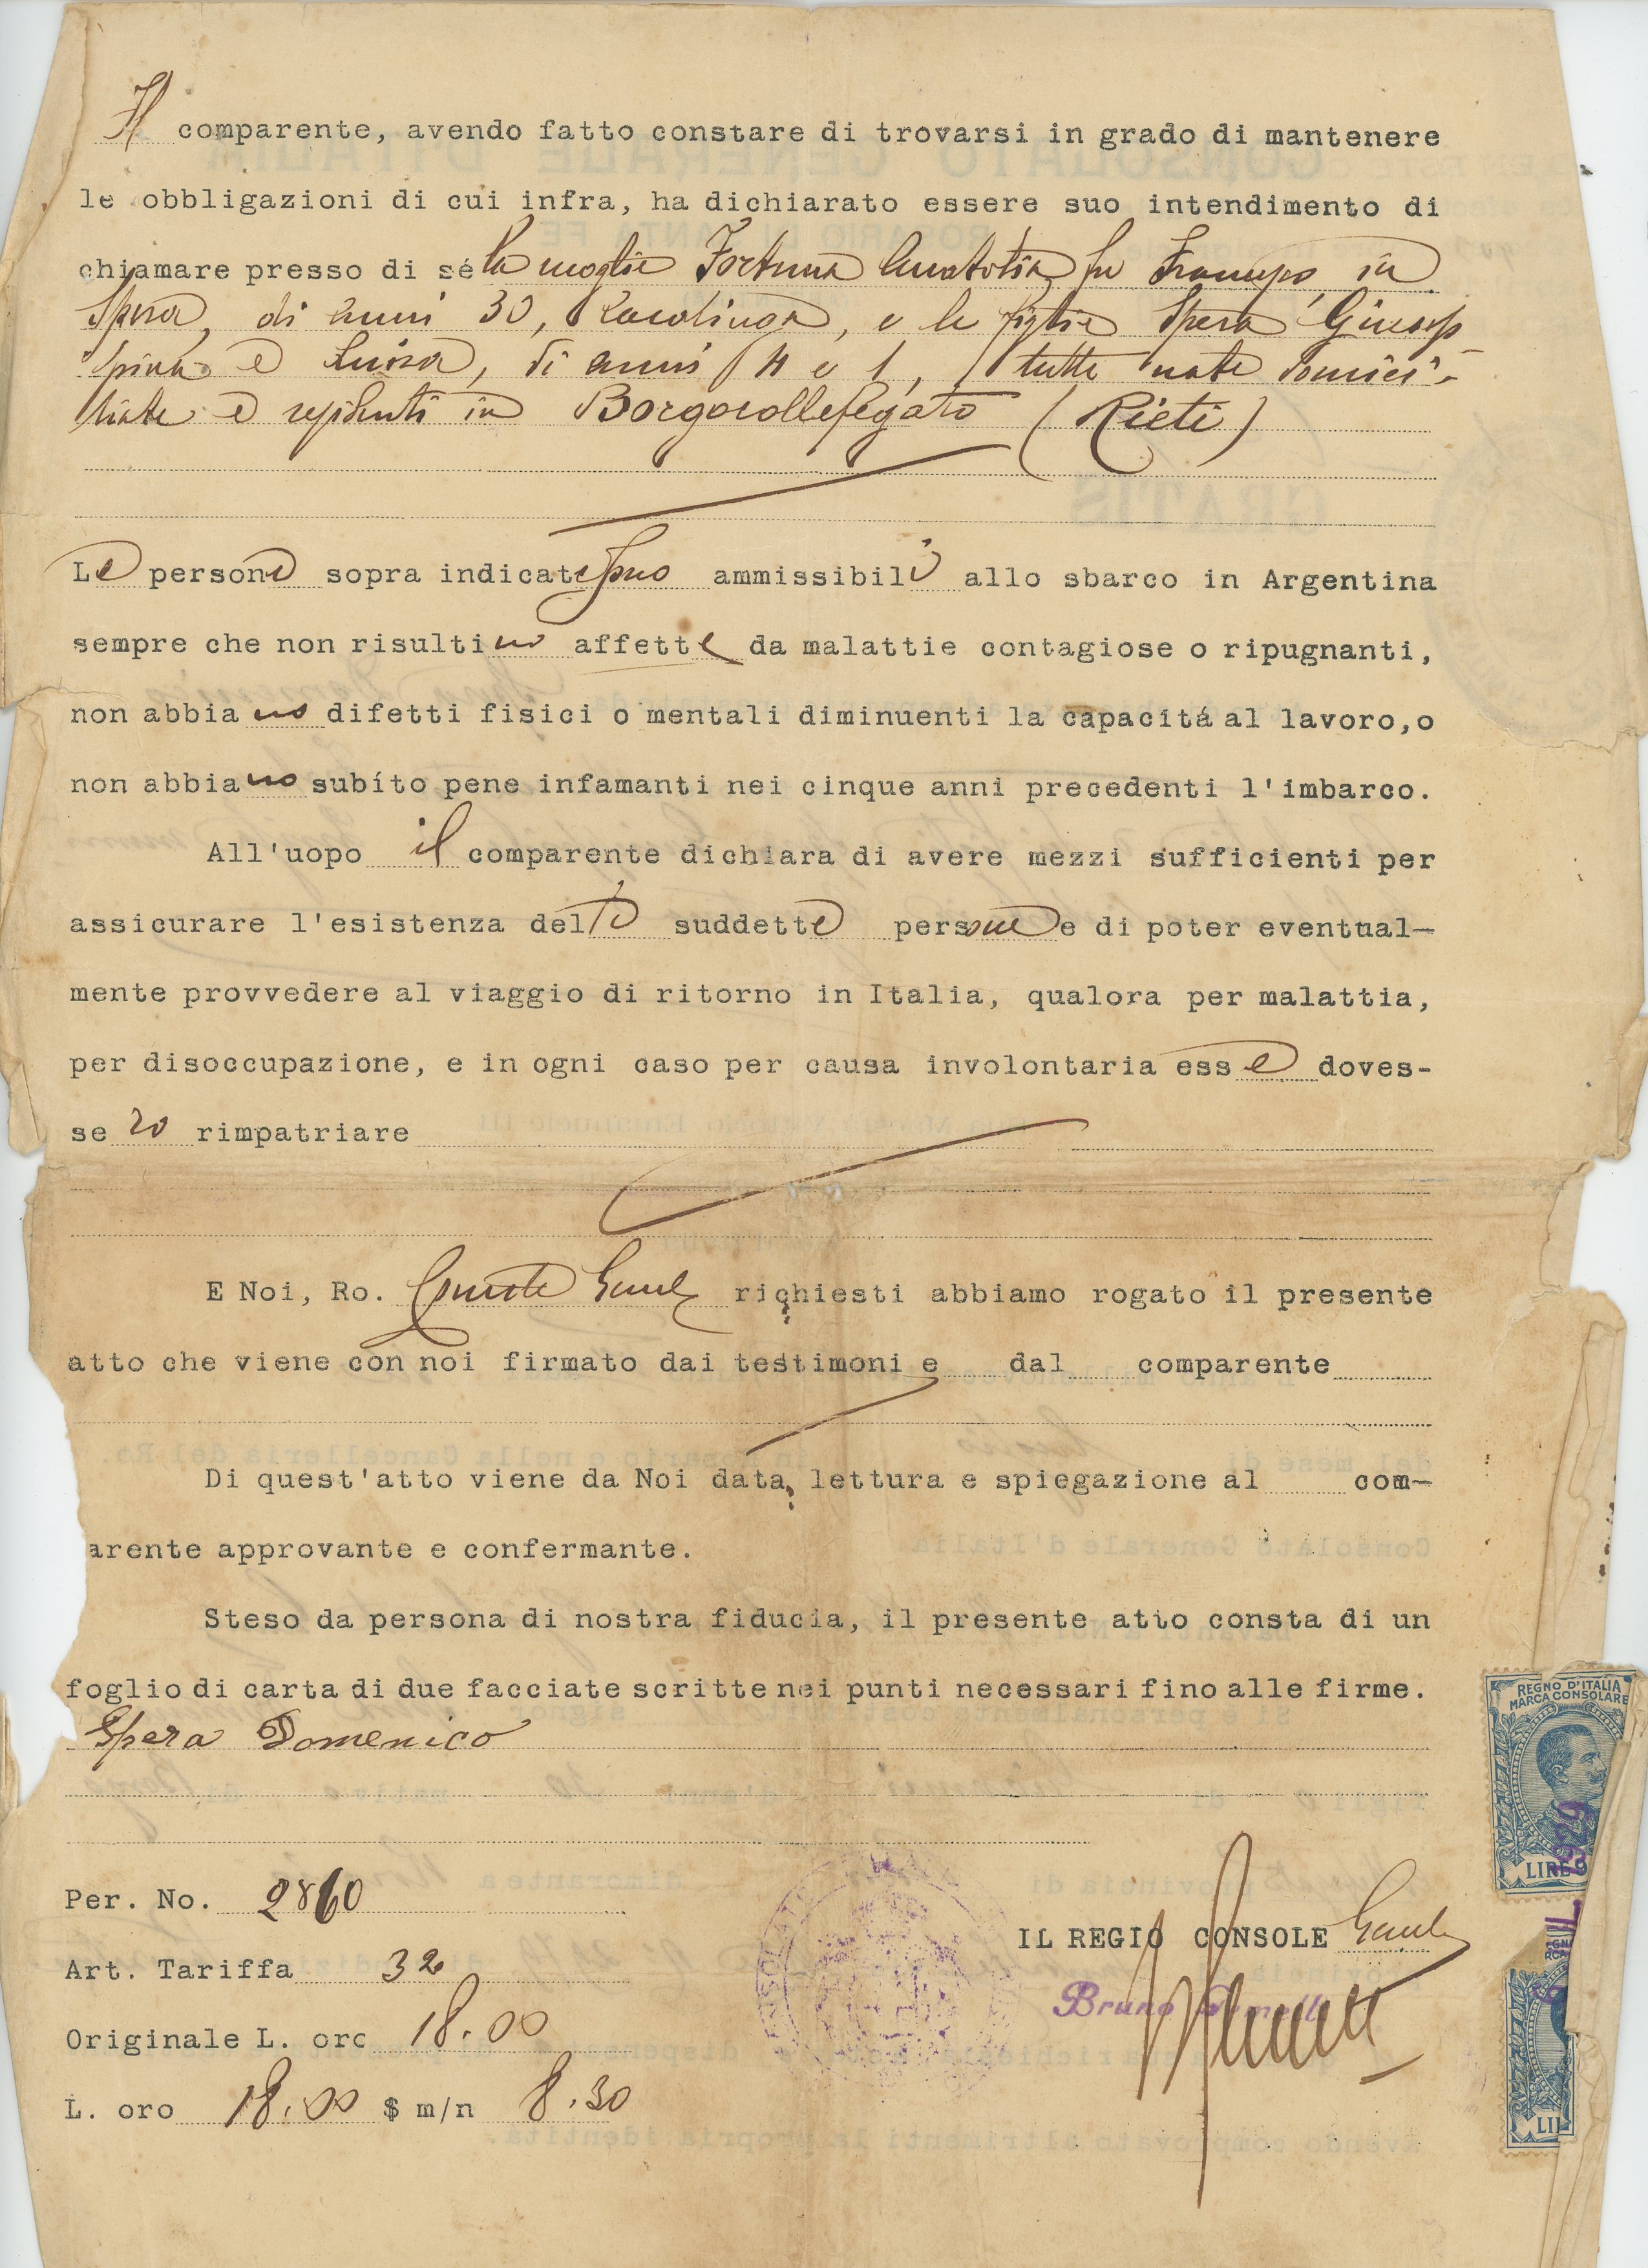 Il comparente, avendo fatto constare di trovarsi in grado di mantenere
le obbligazioni di cui infra, ha dichiarato essere suo intendimento di
chiamare presso di sé la moglie Fortuna Anatolia fu in
Spera, di anni 30, casalinga, e le figlie Spera Giusep
pina e Luisa, di anni 4 e 1, tutte nate domici-
liate e residenti in Borgocollefegato (Rieti)
Le persone sopra indicate sono ammissibili allo sbarco in Argentina
sempre che non risultino affette da malattie contagiose o ripugnanti,
non abbiano difetti fisici o mentali diminuenti la capacitá al lavoro, o
non abbiano subíto pene infamanti nei cinque anni precedenti l'imbarco.
All'uopo il comparente dichiara di avere mezzi sufficienti per
assicurare l'esistenza delle suddette persone e di poter eventual-
mente provvedere al viaggio di ritorno in Italia, qualora per malattia,
per disoccupazione, e in ogni caso per causa involontaria esse doves-
sero rimpatriare
E Noi, Ro. richiesti abbiamo rogato il presente
atto che viene con noi firmato dai testimoni e dal comparente
Di quest'atto viene da Noi data lettura e spiegazione al com-
arente approvante e confermante.
Steso da persona di nostra fiducia, il presente atto consta di un
foglio di carta di due facciate scritte nei punti necessari fino alle firme.
Spera Domenico
REGNO D'ITALIA
MARCA CONSOLARE
LIRE 9
1929
Per. No. 2860
IL REGIO CONSOLE
Art. Tariffa 32
Bruno
Originale L. oro 18.00
L. oro 18.00 $ m/n 8.30